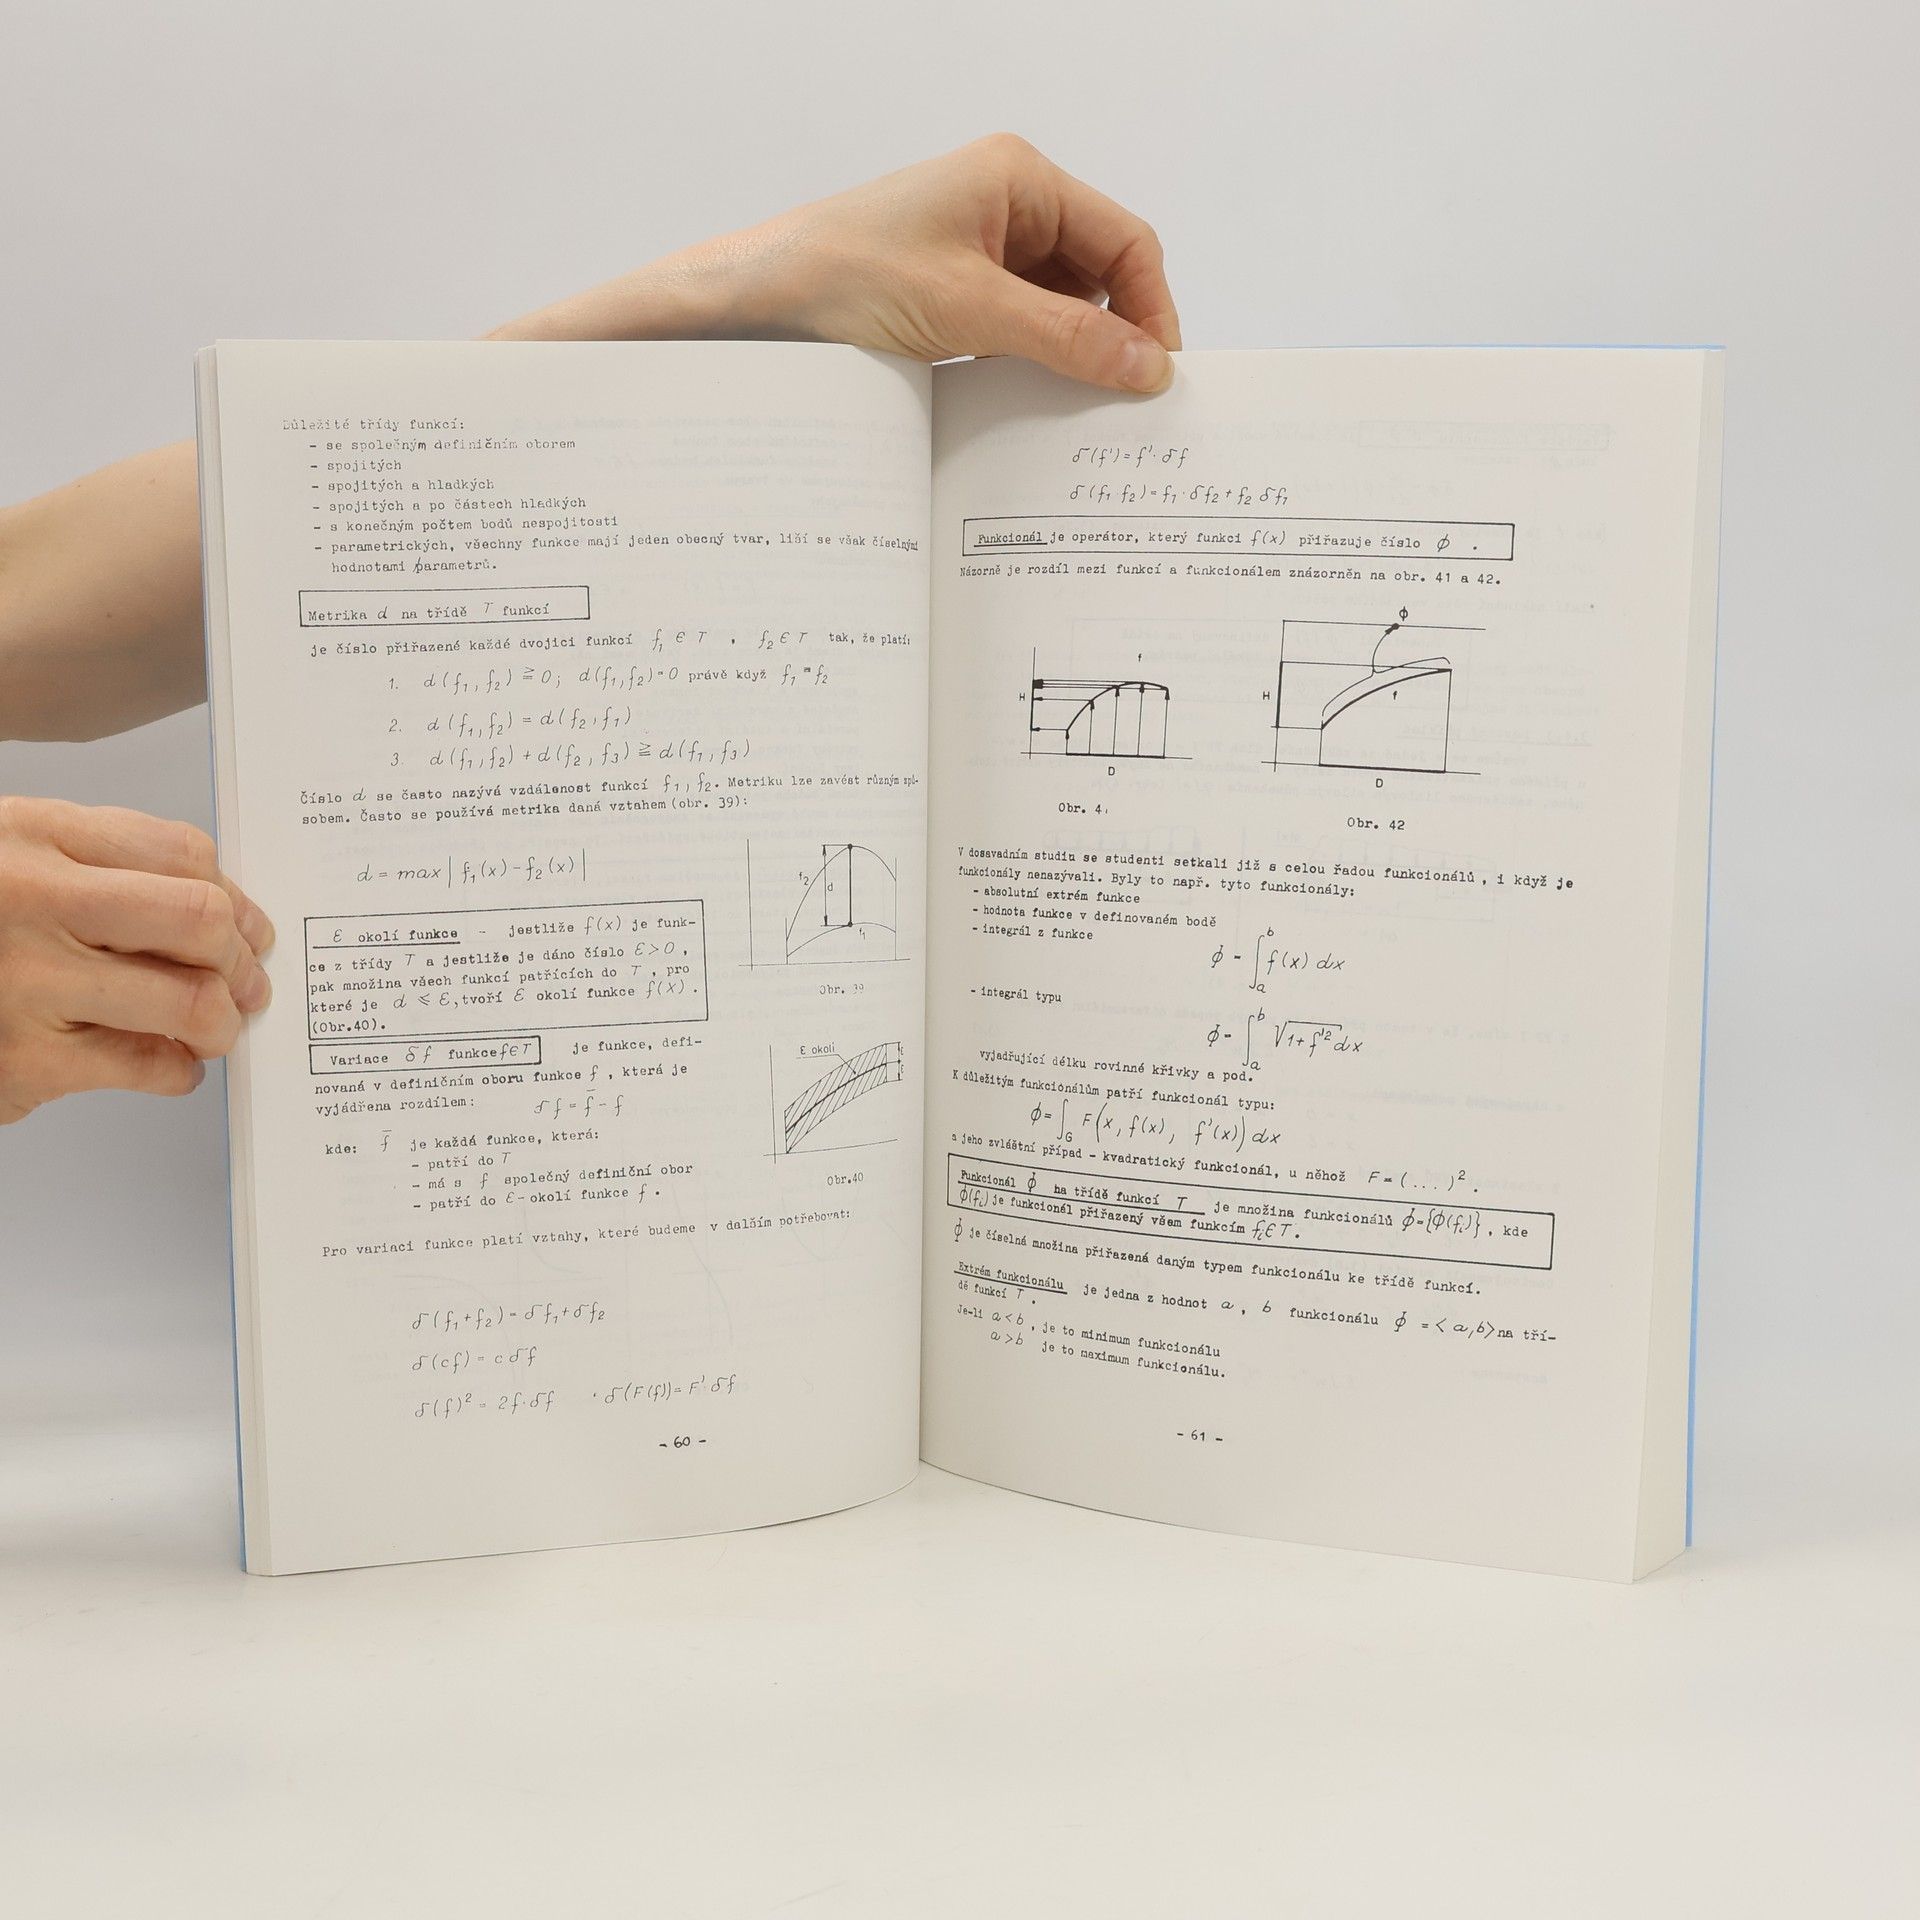 Důležité třídy funkcí:
- se společným definičním oborem
- spojitých
- spojitých a hladkých
- spojitých a po částech hladkých
- s konečným počtem bodů nespojitosti
- parametrických, všechny funkce mají jeden obecný tvar, liší se však číselnými
hodnotami parametrů.
Metrika d na třídě T funkcí
je číslo přiřazené každé dvojici funkcí f₁ ∈ T , f₂ ∈ T tak, že platí:
1. d(f₁, f₂) ≧ 0; d(f₁,f₂)=0 právě když f₁=f₂
2. d(f₁,f₂) = d(f₂,f₁)
3. d(f₁,f₂) + d(f₂,f₃) ≧ d(f₁,f₃)
Číslo d se často nazývá vzdálenost funkcí f₁, f₂. Metriku lze zavést různým způ-
sobem. Často se používá metrika daná vztahem (obr. 39):
d = max | f₁(x) - f₂(x) |
f₂
d
f₁
Obr. 39
ε okolí funkce - jestliže f(x) je funk-
ce z třídy T a jestliže je dáno číslo ε>0,
pak množina všech funkcí patřících do T, pro
které je d ≤ ε, tvoří ε okolí funkce f(x).
(Obr.40).
Variace δf funkce f∈T je funkce, defi-
novaná v definičním oboru funkce f, která je
vyjádřena rozdílem: δf = f̄ - f
kde: f̄ je každá funkce, která:
- patří do T
- má s f společný definiční obor
- patří do ε-okolí funkce f.
ε okolí
ε
ε
Obr.40
Pro variaci funkce platí vztahy, které budeme v dalším potřebovat:
δ(f₁+f₂) = δf₁+δf₂
δ(cf) = c δf
δ(f)² = 2f·δf · δ(F(f)) = F' δf
- 60 -
δ(f') = f'· δf
δ(f₁·f₂) = f₁·δf₂ + f₂ δf₁
Funkcionál je operátor, který funkci f(x) přiřazuje číslo ϕ .
Názorně je rozdíl mezi funkcí a funkcionálem znázorněn na obr. 41 a 42.
H
f
D
Obr. 4
ϕ
H
f
D
Obr. 42
V dosavadním studiu se studenti setkali již s celou řadou funkcionálů, i když je
funkcionály nenazývali. Byly to např. tyto funkcionály:
- absolutní extrém funkce
- hodnota funkce v definovaném bodě
- integrál z funkce
ϕ = ∫ₐᵇ f(x) dx
- integrál typu
ϕ = ∫ₐᵇ √(1+f'²) dx
vyjadřující délku rovinné křivky a pod.
K důležitým funkcionálům patří funkcionál typu:
ϕ = ∫_G F(x, f(x), f'(x)) dx
a jeho zvláštní případ - kvadratický funkcionál, u něhož F = (...)².
Funkcionál ϕ na třídě funkcí T je množina funkcionálů ϕ={ϕ(fᵢ)}, kde
ϕ(fᵢ) je funkcionál přiřazený všem funkcím fᵢ∈T.
ϕ je číselná množina přiřazená daným typem funkcionálu ke třídě funkcí.
Extrém funkcionálu je jedna z hodnot a, b funkcionálu ϕ = <a,b> na tří-
dě funkcí T.
Je-li a<b, je to minimum funkcionálu
a>b je to maximum funkcionálu.
- 61 -